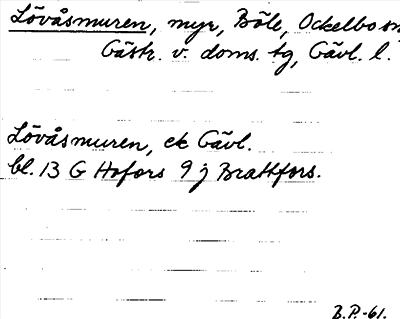 Lövåsmuren, myr, Böle, Ockelbo sn
Gästr. v. doms. tg, Gävl. l.
Lövåsmuren, ek Gävl.
bl. 13 G Hofors 9 j Brattfors.
B.P.-61.